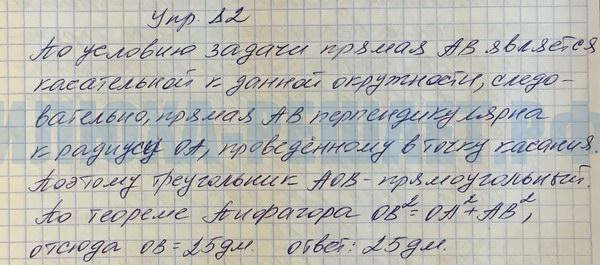 Упр. 12
По условию задачи прямая AB является
касательной к данной окружности, следо-
вательно, прямая AB перпендикулярна
к радиусу OA, проведённому в точку касания.
Поэтому треугольник AOB - прямоугольный.
По теореме Пифагора OB² = OA² + AB²,
отсюда OB = 25дм. ответ: 25дм.